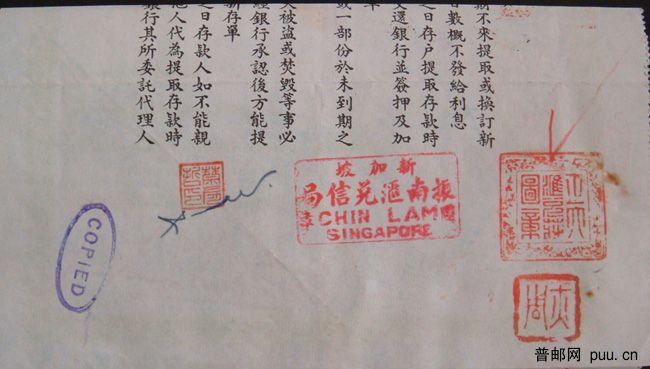 期不來提取或換訂新
日數概不發給利息
之日存户提取存款時
交還銀行並簽押及加
單
或一部份於未到期之
失被盜或焚毀等事必
經銀行承認後方能提
新存單
之日存款人如不能親
他人代為提取存款時
銀行其所委託代理人
新加坡
振南滙兌信局
CHIN LAM
SINGAPORE
圖章
COPIED
普邮网 puu.cn